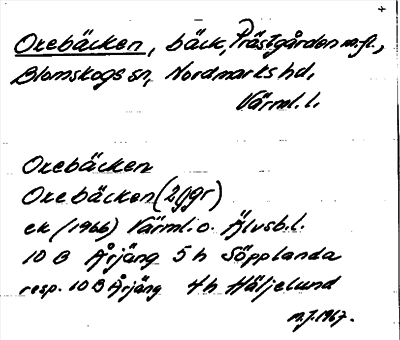 Oxebäcken, bäck, Prästgården m.fl.,
Blomskogs sn, Nordmarks hd,
Värml. l.
Oxebäcken
Oxebäcken (2 ggr)
ek (1966) Värml. o. Älvsb. l.
10 B Årjäng 5 h Söpplanda
resp. 10 B Årjäng 4h Häljelund
1967.